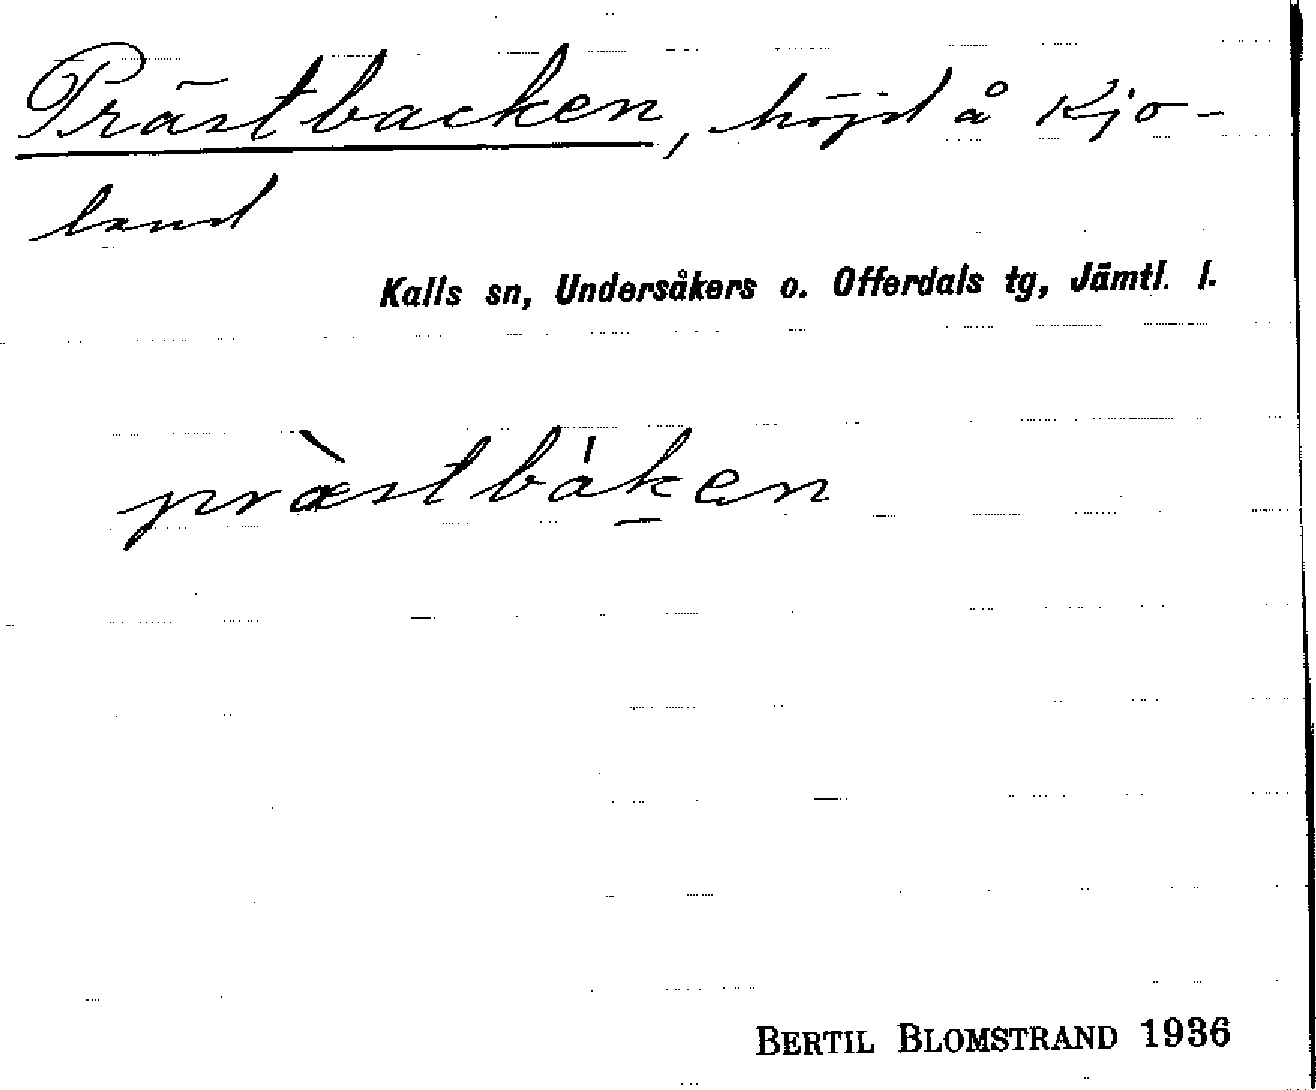 Prästbacken, höjd å Kjo-
land
Kalls sn, Undersåkers o. Offerdals tg, Jämtl. l.
præ̀stbák̠en
BERTIL BLOMSTRAND 1936